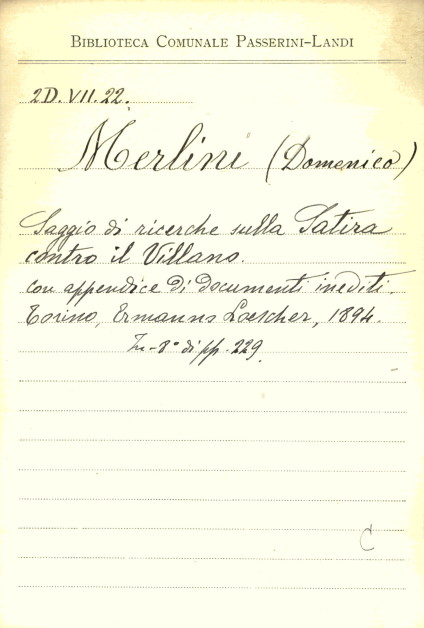 BIBLIOTECA COMUNALE PASSERINI-LANDI
2D.VII.22.
Merlini (Domenico)
Saggio di ricerche sulla Satira
contro il Villano.
con appendice di documenti inediti.
Torino, Ermanno Loescher, 1894.
In-8° di pp. 229.
C